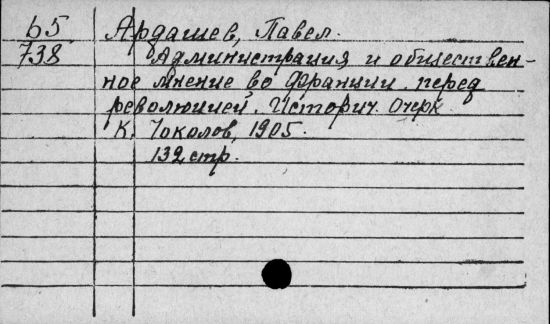 Б5
738
Ардашев, Павел.
Администрация и обществен-
ное мнение во Франции перед
революцией. Историч. очерк
К. Чоколов, 1905.
132 стр.